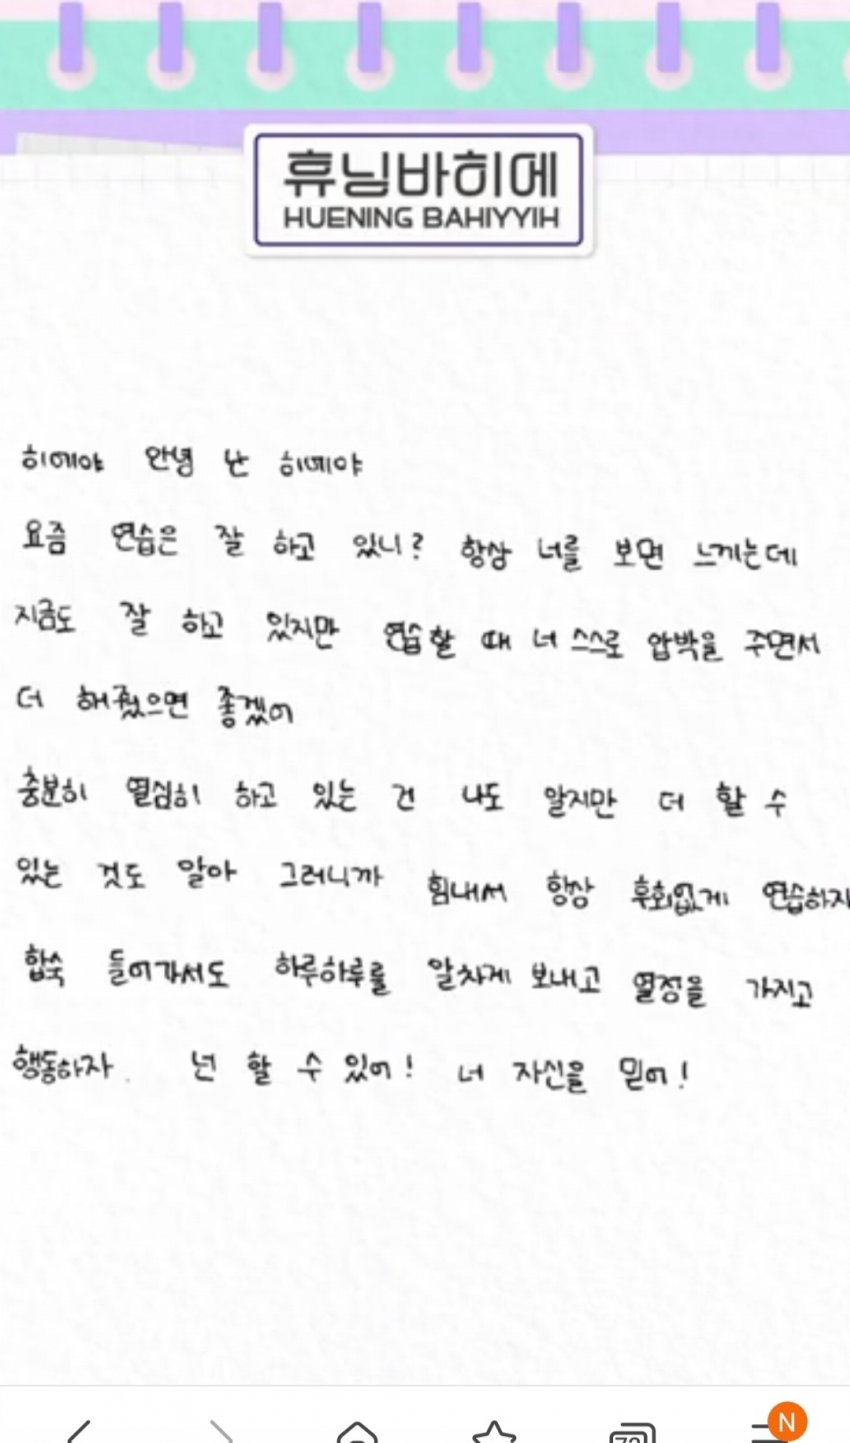 휴닝바히에
HUENING BAHIYYIH
히에야 안녕 난 히에야
요즘 연습은 잘 하고 있니? 항상 너를 보면 느끼는데
지금도 잘 하고 있지만 연습할 때 너 스스로 압박을 주면서
더 해줬으면 좋겠어
충분히 열심히 하고 있는 건 나도 알지만 더 할 수
있는 것도 알아 그러니까 힘내서 항상 후회없게 연습하자
합숙 들어가서도 하루하루를 알차게 보내고 열정을 가지고
행동하자. 넌 할 수 있어! 너 자신을 믿어!
N